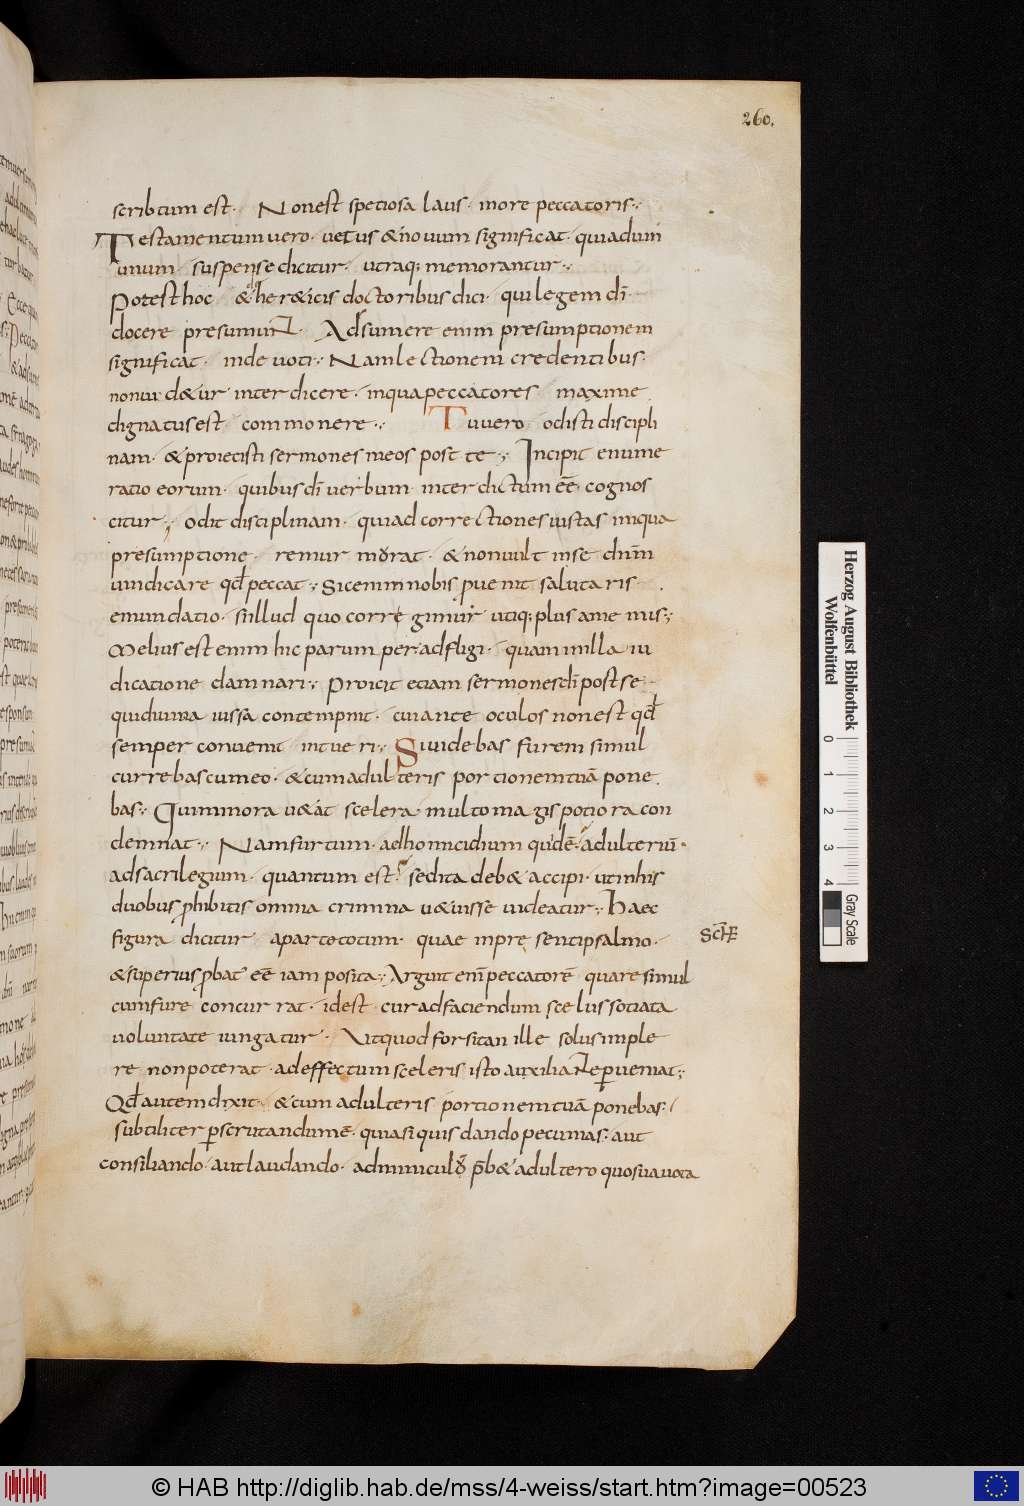 260.
scribtum est. Non est speciosa laus. in ore peccatoris.
Testamentum vero. vetus & novum significat. quia dum
unum suspense dicitur. utraq; memorantur.
Potest hoc & her&icis doctoribus dici. qui legem dī
docere presumunt. Adsumere enim presumptionem
significat. inde uoti. Nam lectionem credentibus.
non uid&ur interdicere. in qua peccatores maxime
dignatus est commonere. Tu vero odisti discipli
nam. & proiecisti sermones meos post te. Incipit enume
ratio eorum. quibus dī verbum interdictum eē cognos
citur. odit disciplinam. qui ad correctiones iustas iniqua
presumptione remurmorat. & non vult in se dnm̄
vindicare qđ peccat. Sic enim nobis puenit salutaris
emundatio. si illud quo corregimur utiq; plus amemus.
Melius est enim hic parum per adfligi. quam in illa iu
dicatione damnari. Proicit etiam sermones dī post se.
qui divina iussa contempnit. cui ante oculos non est qđ
semper convenit intueri. Si videbas furem simul
currebas cum eo. & cum adulteris portionem tuā pone
bas. Qui minora u&at scelera. multo magis potiora con
demnat. Nam furtum. ad homicidium quidē. adulteriū.
ad sacrilegium. quantum est. sed ita deb& accipi. ut in his
duobus phibitis omnia crimina u&uisse videatur. Haec
figura dicitur a parte totum. quae in presenti psalmo.
& superius pbat eē iam posita. Arguit enī peccatorē quare simul
cum fure concurrat. id est cur ad faciendum scelus sociata
voluntate iungatur. Ut quod forsitan ille solus imple
re non poterat. ad effectum sceleris isto auxiliante pveniat.
Qđ autem dixit. & cum adulteris portionem tuā ponebas.
subtiliter pscrutandum ē. quia si quis dando pecunias. aut
consiliando. aut laudando. adminiculū pb& adultero quo sua vota
Herzog August Bibliothek
Wolfenbüttel
0 1 2 3 4
Gray Scale
© HAB http://diglib.hab.de/mss/4-weiss/start.htm?image=00523